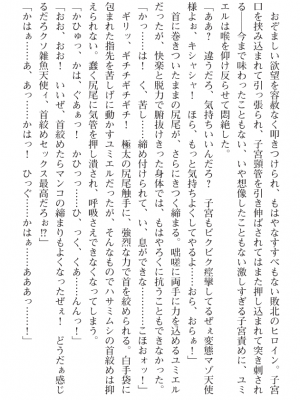 おぞましい欲望を容赦なく叩きつけられ、もはやなすすべもない敗北のヒロイン。子宮
口を挟み込まれて引っ張られ、子宮頸管を引き伸ばされてはまた押し込まれて突き刺され
る。今まで味わったこともない、いや想像したこともない激しすぎる子宮責めに、ユミ
エルは喉を仰け反らせて悶絶した。
「ああ？　違うだろ、気持ちいいんだろ？　子宮もビクビク痙攣してるぜぇ変態マゾ天使
様よぉ。キシャシャ！　ほら、もっと気持ちよくしてやるよ…おら、おらぁ！」
首に巻きついたままの尻尾が、さらにきつく締まる。咄嗟に両手に力を込めるユミエル
だったが、快楽と脱力で腑抜けきった身体では、もはやろくに抗うこともできない。
「かっ……は！　く、苦し…締め付けられて、い、息ができな……こほぉォッ！」
ギリッ、ギチギチギチ！　極太の尻尾触手に、強烈な力で首を絞められる。白手袋に
包まれた指先を苦しげに動かすユミエルだったが、そんなものでハサミムシの首絞めは抑
えられない。蠢く尻尾に気管を押し潰され、呼吸さえできなくなってしまう。
「かひゅっ、かは、ぐあぁっ！　かひっ……ひっ、くぅ、くあ……んんっ！」
「おお、おお！　いいぜ、首絞めたらマンコの締まりもよくなったぜぇ！　どうだぁ感じ
るだろクソ雑魚天使ィ、首絞めセックス最高だろぉ!?」
「かはぁ……あ、ああっ……かはっ……ひっく……かはぁ……あああっ…！」